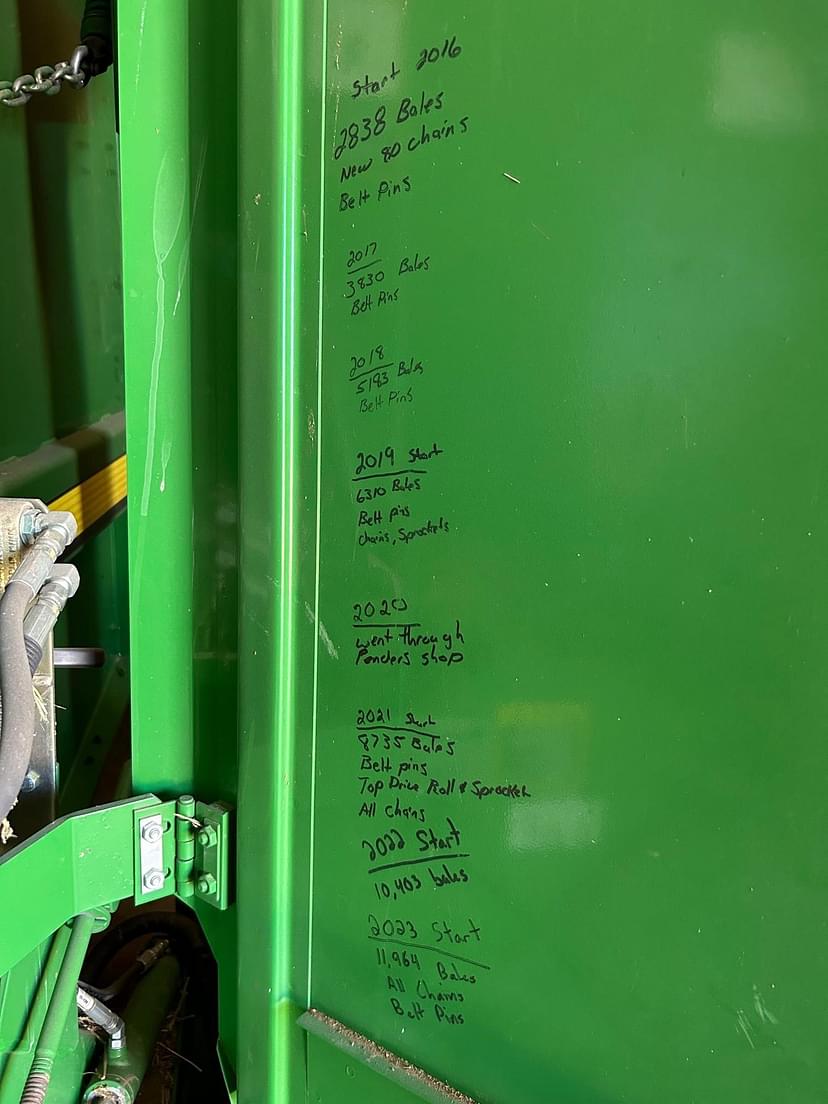 Start 2016
2838 Bales
New 80 chains
Belt Pins
2017
3830 Bales
Belt Pins
2018
5193 Bales
Belt Pins
2019 Start
6310 Bales
Belt pins
Chains, Sprockets
2020
went through
Penders shop
2021 Start
8735 Bales
Belt pins
Top Drive Roll & Sprocket
All Chains
2022 Start
10,403 bales
2023 Start
11,964 Bales
All Chains
Belt Pins